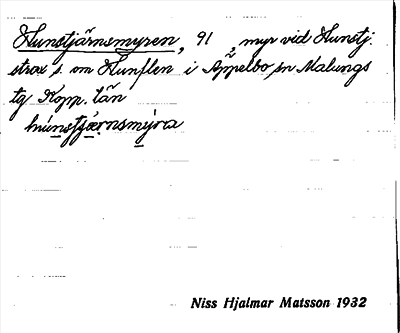 Hunstjärnsmyren, 91, myr vid Hunstj.
strax s. om Hunflen i Äppelbo sn Malungs
tg Kopp. län
hunstjærnsmyra
Niss Hjalmar Matsson 1932